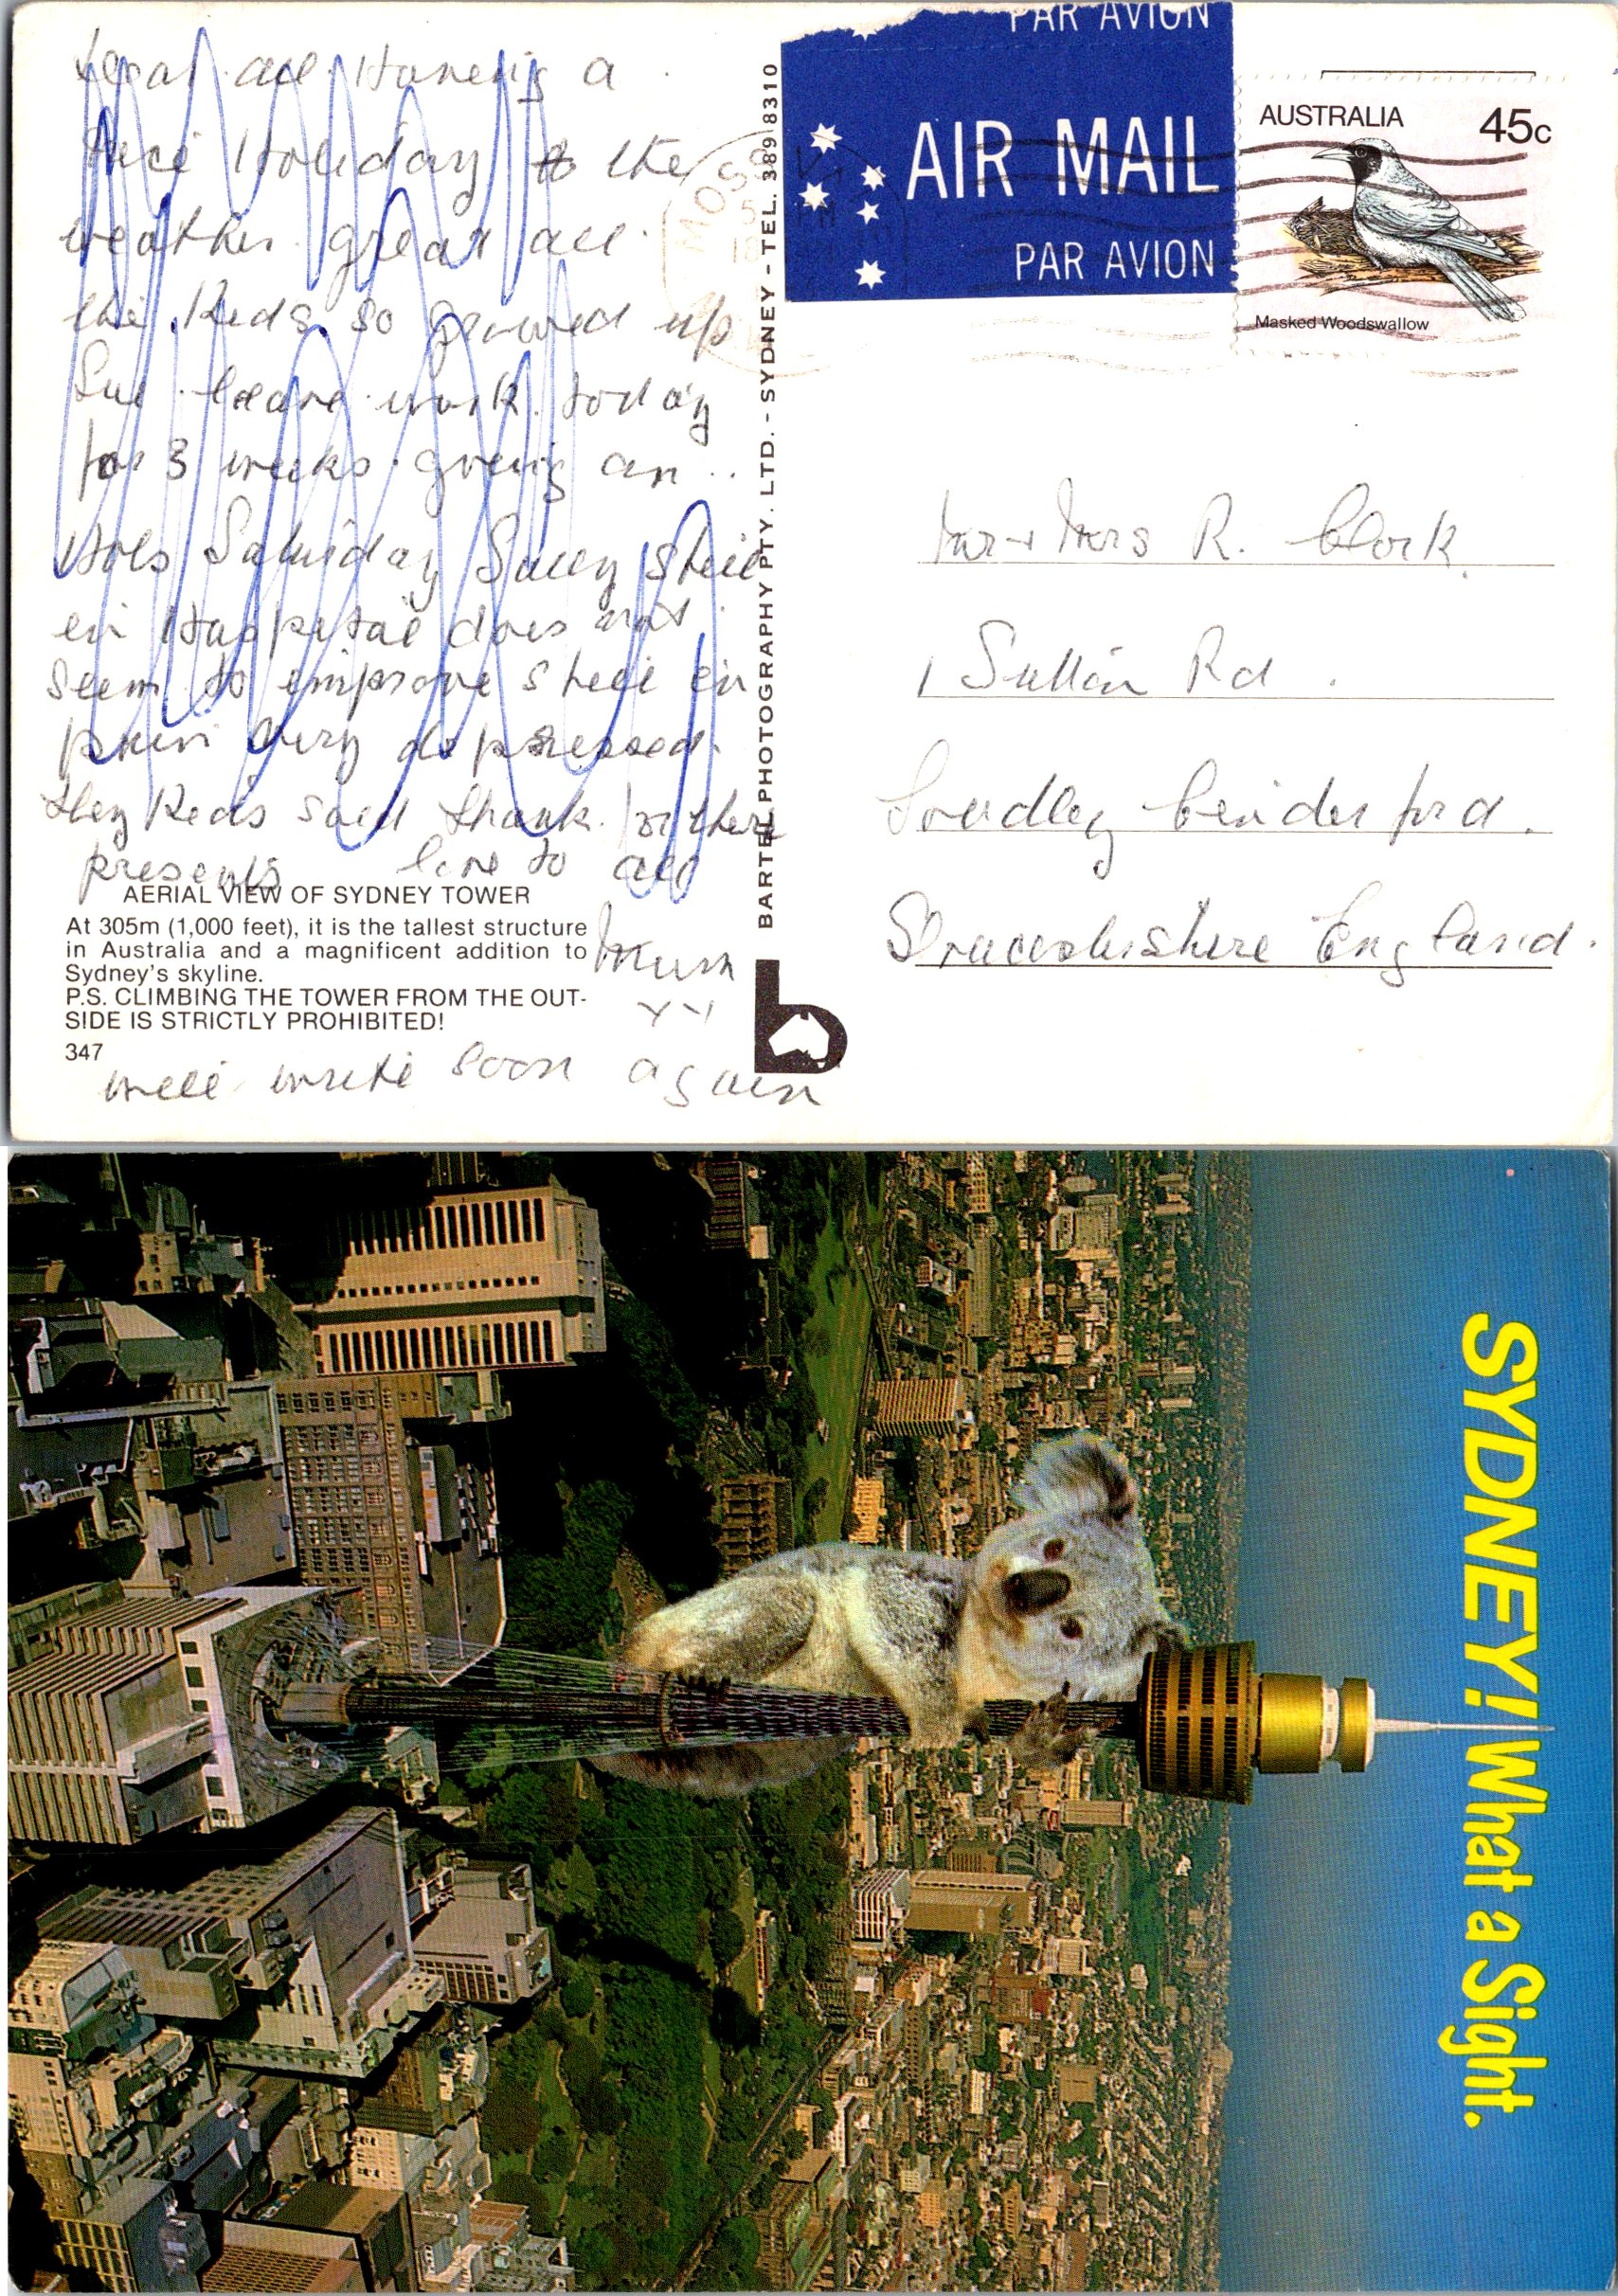 Dear all Haveing a
nice Holiday & the
weather great all
the Kids so growed up
Sue leave work today
for 3 weeks going an
Hols Saturday Sally still
in Hospital does not
seem to improve still in
pain Very depressed.
they Keds said thank for there
presents love to all
Mum
will write soon again
AERIAL VIEW OF SYDNEY TOWER
At 305m (1,000 feet), it is the tallest structure
in Australia and a magnificent addition to
Sydney's skyline.
P.S. CLIMBING THE TOWER FROM THE OUT-
SIDE IS STRICTLY PROHIBITED!
347
BARTEL PHOTOGRAPHY PTY. LTD. - SYDNEY - TEL. 389 8310
b
PAR AVION
AIR MAIL
PAR AVION
AUSTRALIA 45c
Masked Woodswallow
MOSS
PM
Mr + Mrs R. Clark.
1 Sutton Rd.
Soudley Cinderford.
Gloucestershire England.
SYDNEY! What a Sight.